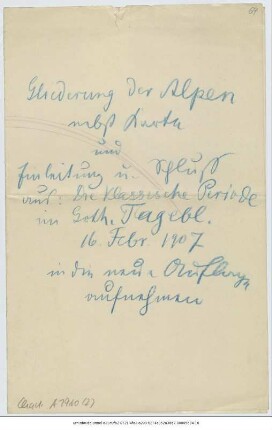 Gliederung der Alpen
nebst Karte
und
Einleitung u. Schluß
aus: Die klassische Periode
im Goth. Tagebl.
16. Febr. 1907
in die neue Auflage
aufnehmen